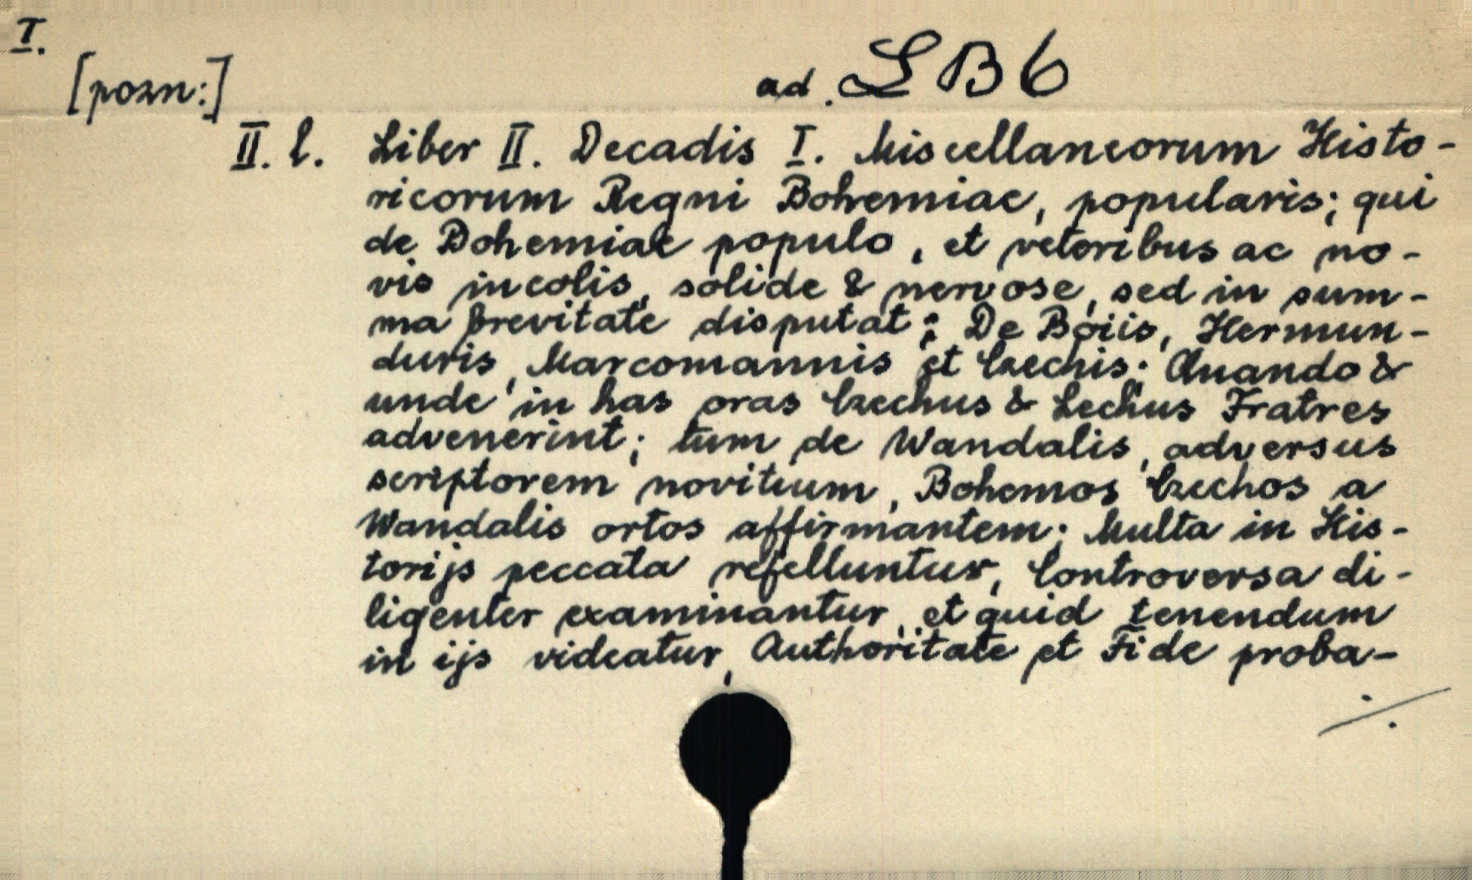 I.
[pozn:]
ad. LB6
II. l. Liber II. Decadis I. Miscellaneorum Histo-
ricorum Regni Bohemiae, popularis; qui
de Bohemiae populo, et veteribus ac no-
vis incolis, solide & nervose, sed in sum-
ma brevitate disputat; De Boiis, Hermun-
duris, Marcomannis et Czechis; Quando &
unde in has oras Czechus & Lechus Fratres
advenerint; tum de Wandalis, adversus
scriptorem novitium, Bohemos Czechos a
Wandalis ortos affirmantem; Multa in His-
torijs peccata refelluntur, Controversa di-
ligenter examinantur, et quid tenendum
in ijs videatur, Authoritate et Fide proba-
./.